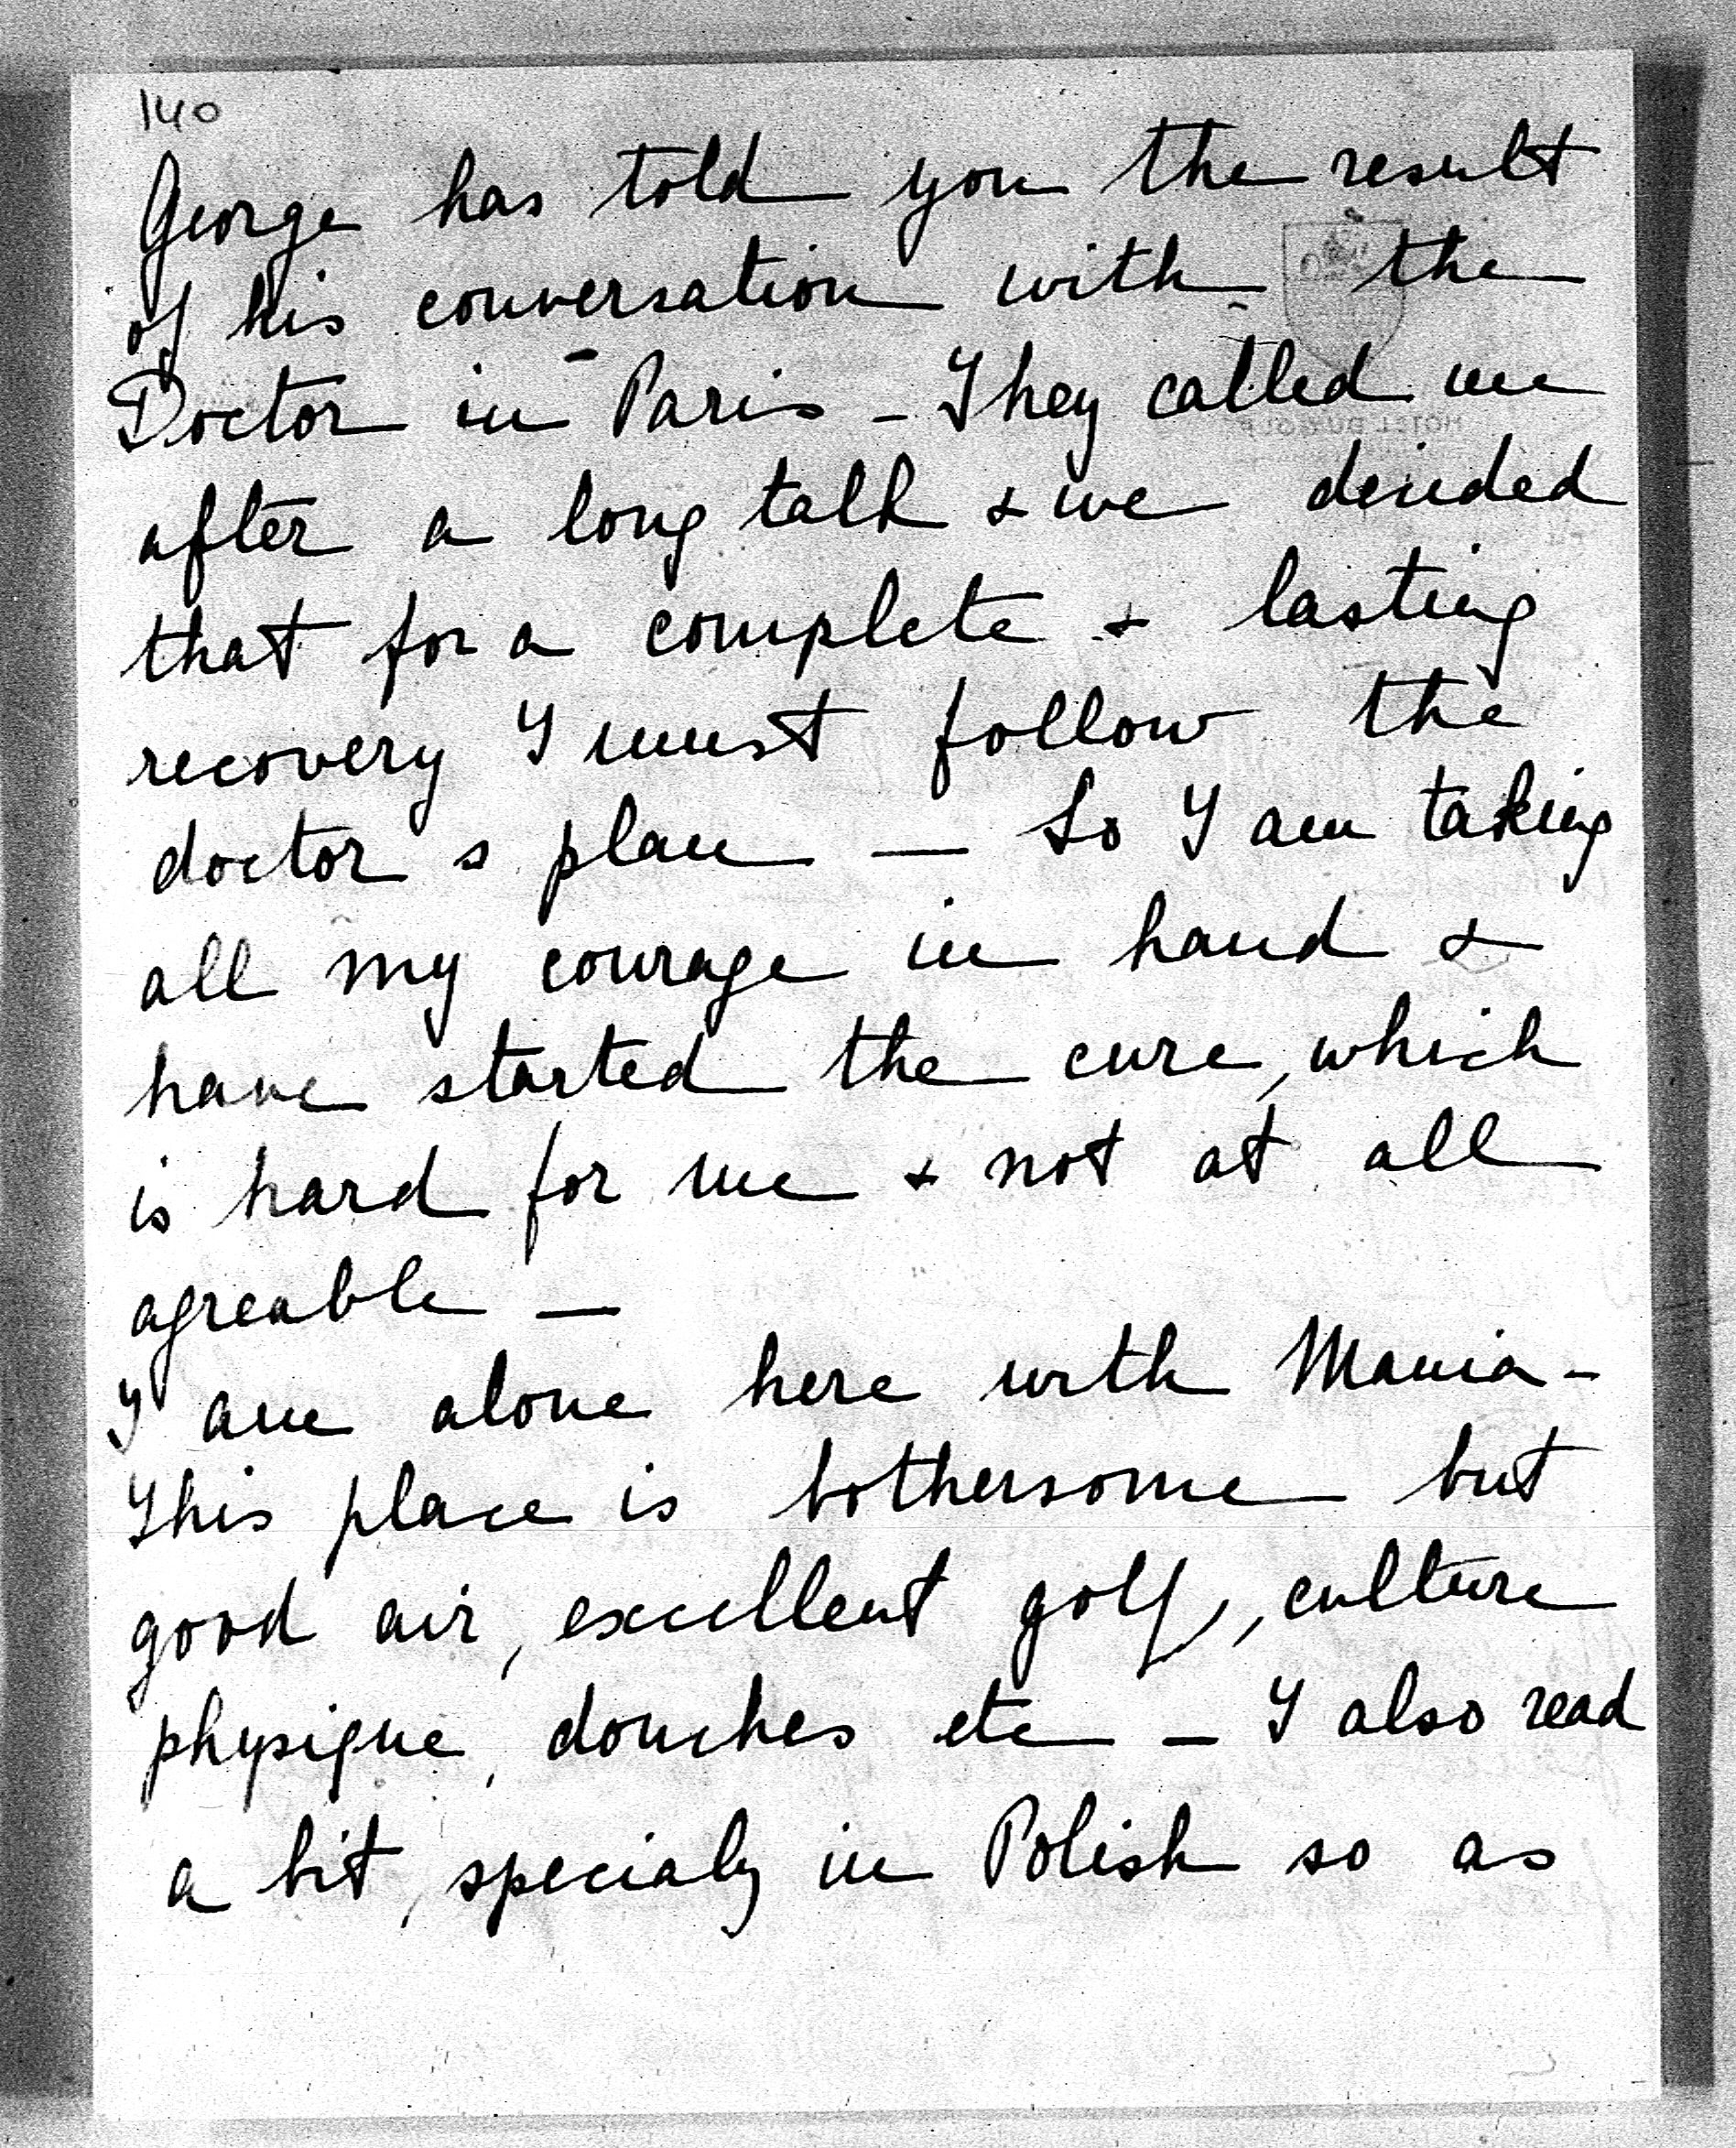 140
George has told you the result
of his conversation with the
Doctor in Paris - They called me
after a long talk & we decided
that for a complete & lasting
recovery I must follow the
doctor s plan — So I am taking
all my courage in hand &
have started the cure, which
is hard for me & not at all
agreable —
I am alone here with Mania -
This place is bothersome but
good air, excellent golf, culture
physique, douches etc - I also read
a bit, specialy in Polish so as